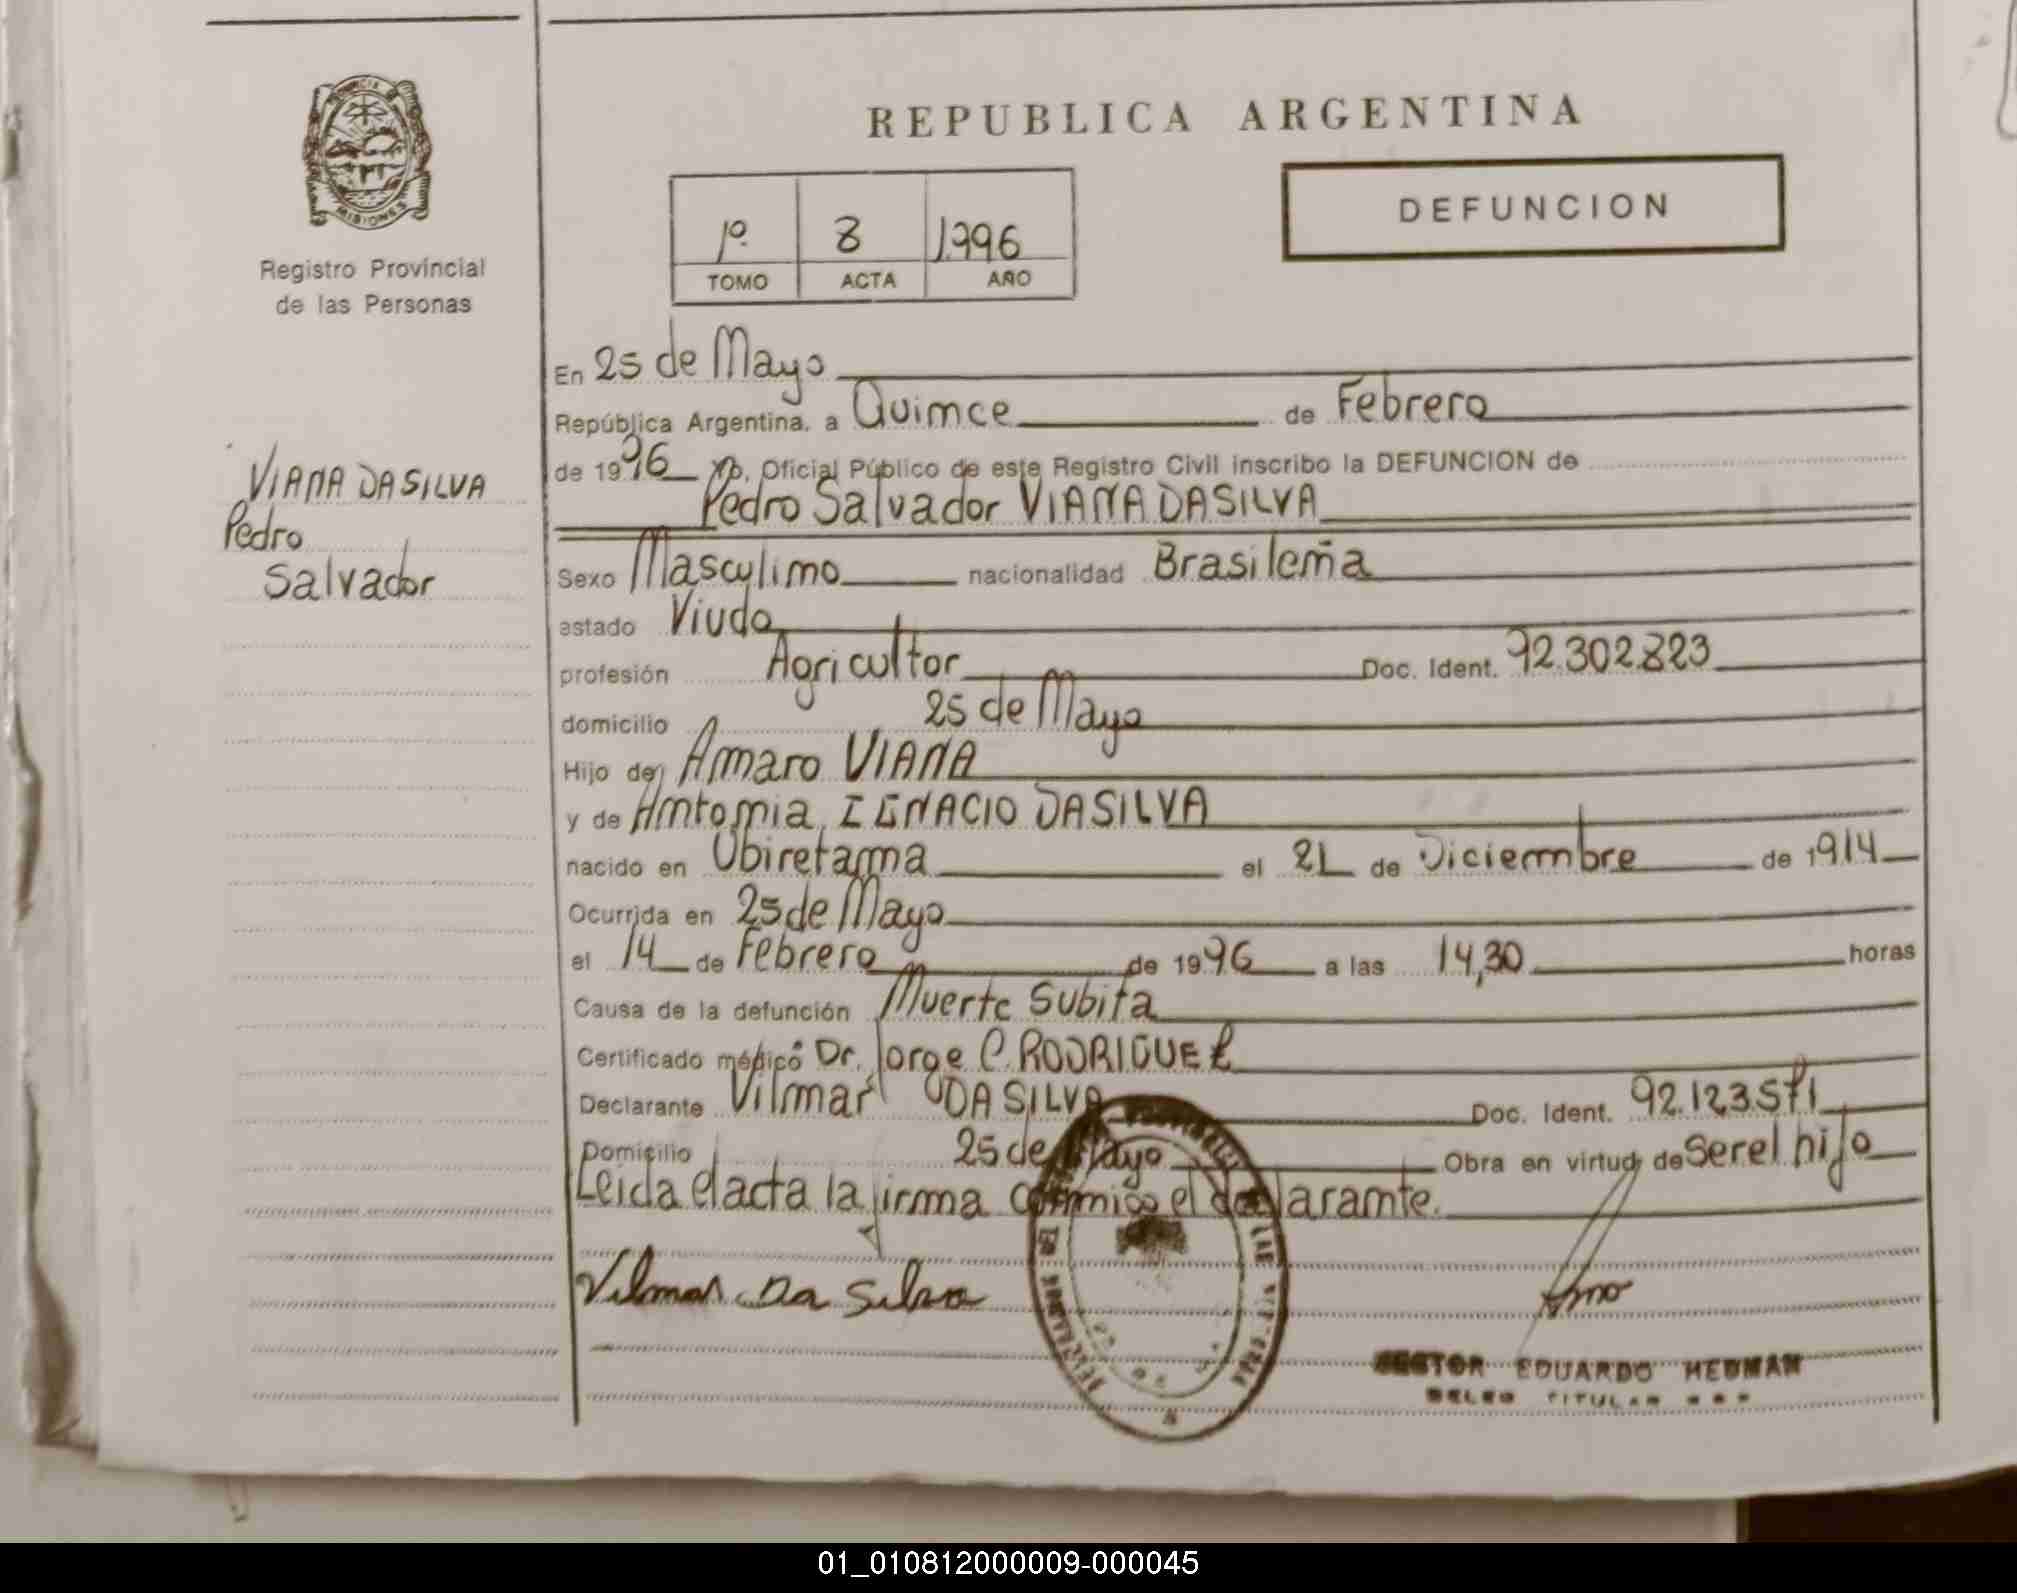 PROVINCIA DE
MISIONES
Registro Provincial
de las Personas
VIANA DASILVA
Pedro
Salvador
REPUBLICA ARGENTINA
DEFUNCION
1º 8 1.996
TOMO ACTA AÑO
En 25 de Mayo
República Argentina, a Quince de Febrero
de 1996 Yo, Oficial Público de este Registro Civil inscribo la DEFUNCION de
Pedro Salvador VIANA DASILVA
Sexo Masculino nacionalidad Brasileña
estado Viudo
profesión Agricultor Doc. Ident. 92.302.823
domicilio 25 de Mayo
Hijo de Amaro VIANA
y de Antonia IGNACIO DASILVA
nacido en Ubiretama el 21 de Diciembre de 1914
Ocurrida en 25 de Mayo
el 14 de Febrero de 1996 a las 14,30 horas
Causa de la defunción Muerte Subita
Certificado médico Dr. Jorge C. RODRIGUEZ
Declarante Vilmar DA SILVA Doc. Ident. 92.123.571
Domicilio 25 de Mayo Obra en virtud de ser el hijo
Leida el acta la firma conmigo el declarante.
Vilmar Da Silva
EDUARDO
TITULAR
01_010812000009-000045